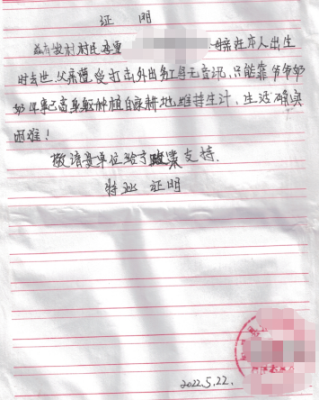 证 明
村村民
母亲在本人出生
时去世,父亲遭受打击外出务工导无音讯,只能靠爷爷奶
奶年事已高身躯种植自家耕地维持生计,生活确实
困难!
敬请贵单位给予政策支持.
特此 证明
2022.5.22.